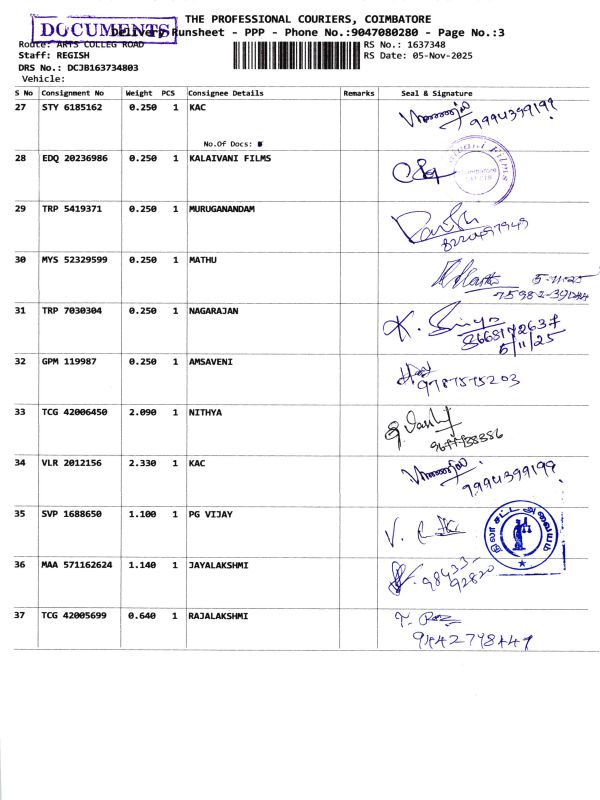 THE PROFESSIONAL COURIERS, COIMBATORE
DOCUMENTS
Delivery Runsheet - PPP - Phone No.:9047080280 - Page No.:3
Route: ARTS COLLEG ROAD
RS No.: 1637348
Staff: REGISH
RS Date: 05-Nov-2025
DRS No.: DCJB163734803
Vehicle:
S No Consignment No Weight PCS Consignee Details Remarks Seal & Signature
27 STY 6185162 0.250 1 KAC 9994399199
No.Of Docs:
28 EDQ 20236986 0.250 1 KALAIVANI FILMS
29 TRP 5419371 0.250 1 MURUGANANDAM
30 MYS 52329599 0.250 1 MATHU 5-11-25
31 TRP 7030304 0.250 1 NAGARAJAN K.
5/11/25
32 GPM 119987 0.250 1 AMSAVENI
9787575203
33 TCG 42006450 2.090 1 NITHYA
34 VLR 2012156 2.330 1 KAC
9994399199
35 SVP 1688650 1.100 1 PG VIJAY V.
நிலா சட்ட அலுவலகம்
36 MAA 571162624 1.140 1 JAYALAKSHMI
98433-
92820
37 TCG 42005699 0.640 1 RAJALAKSHMI